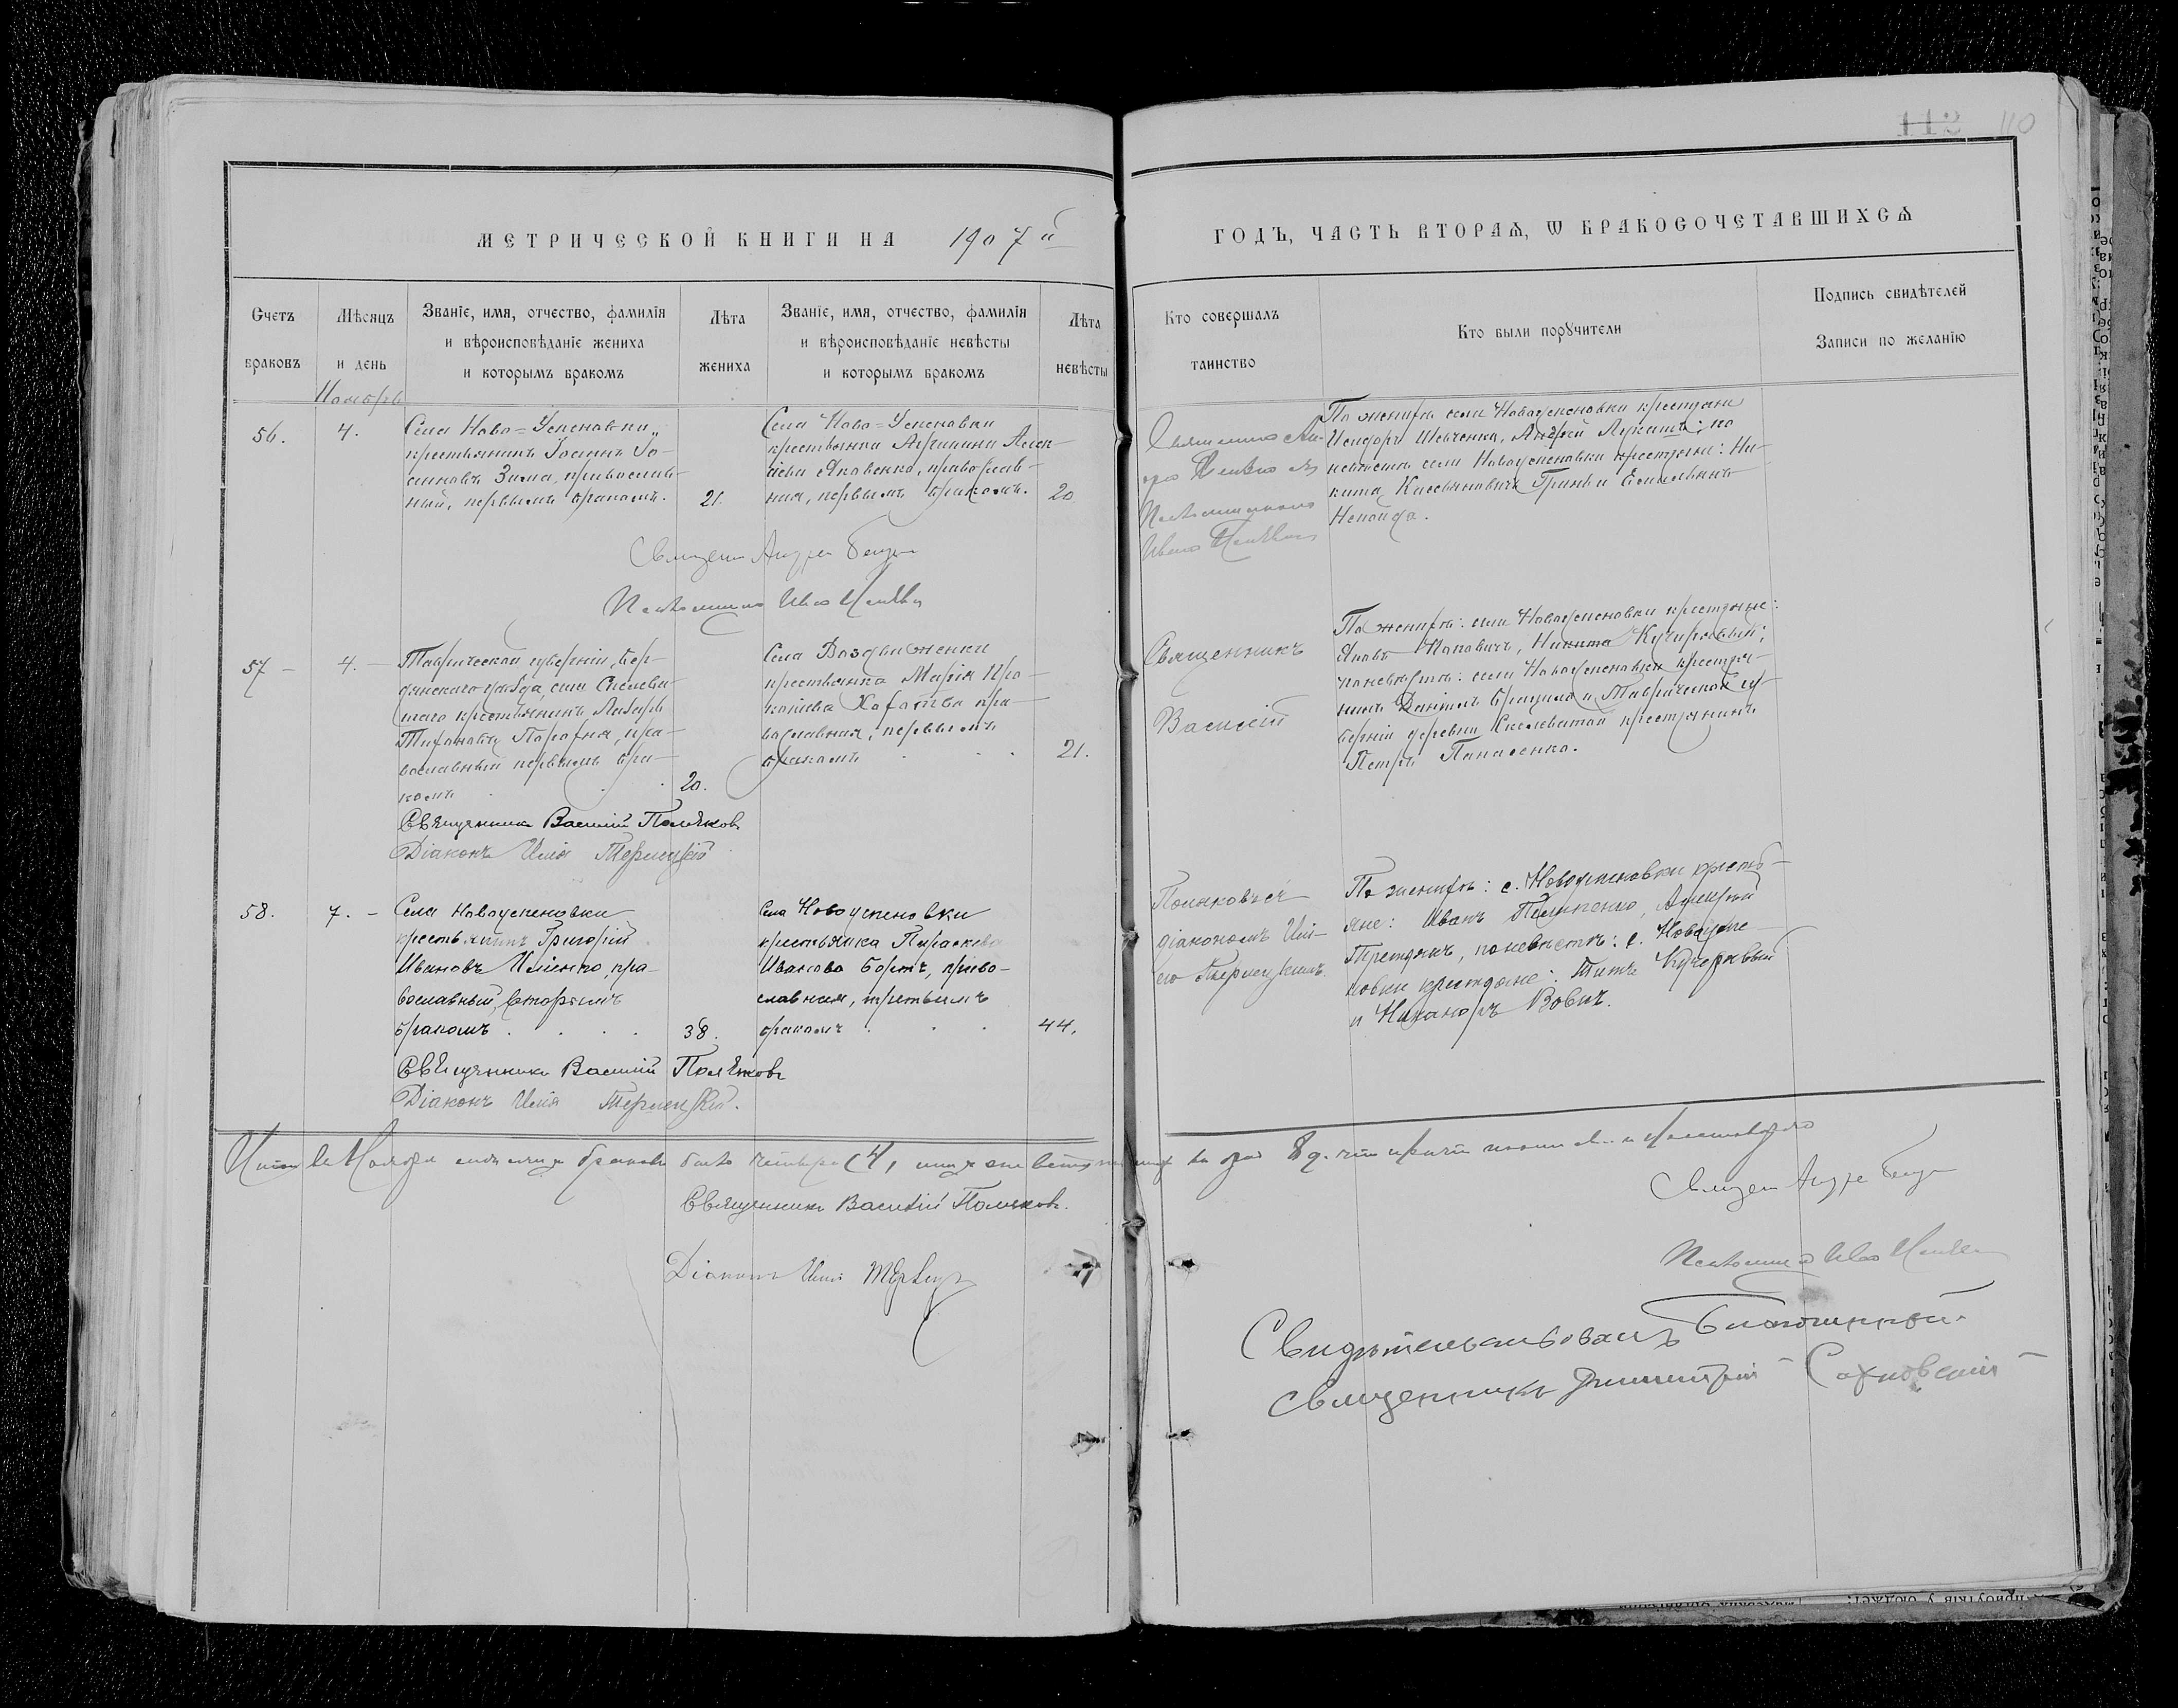 112 110
МЕТРИЧЕСКОЙ КНИГИ НА 1907й
ГОДЪ, ЧАСТЬ ВТОРАѦ, Ѡ БРАКОСОЧЕТАВШИХСѦ
Счетъ
браковъ
Мѣсяцъ
и день
Званіе, имя, отчество, фамилія
и вѣроисповѣданіе жениха
и которымъ бракомъ
Лѣта
жениха
Званіе, имя, отчество, фамилія
и вѣроисповѣданіе невѣсты
и которымъ бракомъ
Лѣта
невѣсты
Кто совершалъ
таинство
Кто были поручители
Подпись свидѣтелей
Записи по желанію
Ноябрь
56.
4.
Села Ново=Успеновки
крестьянинъ Іоаннъ Іо-
анновъ Зима, православ-
ный, первымъ бракомъ.
21.
Села Ново=Успеновки
крестьянка Агрипина Алек-
Яковенко, православ-
ная, первымъ бракомъ.
20
Священник Ан-
Псаломщиком
По женихѣ села Новоуспеновки крестьяне
Исидоръ Шевченко, Андрей Лукашъ; по
невѣстѣ села Новоуспеновки крестьяне: Ни-
кита Касьяновичъ Гринь и Емельянъ
Непойда.
Священ Андре
Псаломщик Иван
57 –
4. –
Таврической губерніи, Бер-
дянскаго уѣзда, села Скелева-
таго крестьянинъ Лазарь
Тихоновъ Парафна, пра-
вославный первымъ бра-
комъ
20.
Села Воздвиженки
крестьянка Марія Про-
копіева Хабатева пра-
вославная, первымъ
бракомъ
21.
Священникъ
Василій
По женихѣ: села Новоуспеновки крестьяне:
Яковъ Попович, Никита Кучерявый;
по невѣстѣ: села Новоуспеновки крестья-
нинъ Даніилъ Брацило и Таврической гу-
берніи деревни Скелеватой крестьянинъ
Петръ Панасенко.
Священникъ Василій Поляковъ
Діаконъ Илія Терлецкій
58.
7. –
Села Новоуспеновки
крестьянинъ Григорій
Ивановъ Иліенко, пра-
вославный, вторымъ
бракомъ
38.
Села Новоуспеновки
крестьянка Параскева
Иванова Бортъ, право-
славная, третьимъ
бракомъ
44.
Поляковъ съ
діакономъ Илі-
ею Терлецкимъ.
По женихѣ: с. Новоуспеновки кресть-
яне: Иванъ Пелипенко, Андрей
Третякъ, по невѣстѣ: с. Новоуспе-
новки крестьяне: Титъ Кучерявый
и Никаноръ Вовкъ.
Священникъ Василій Поляковъ
Діаконъ Илія Терлецкій.
Итого въ Ноябрѣ мѣсяцѣ браковъ было четыре (4)
Священникъ Василій Поляковъ.
Діаконъ Илія Терлецк
Священ Андре
Псаломщик Иван
Свидѣтельствовалъ Благочинный
Священникъ Димитрій Сахновскій